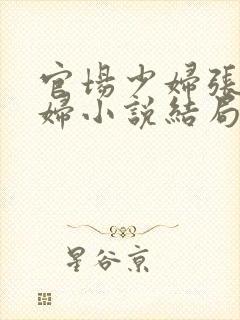 官場少婦張
婦小説結局
星谷京